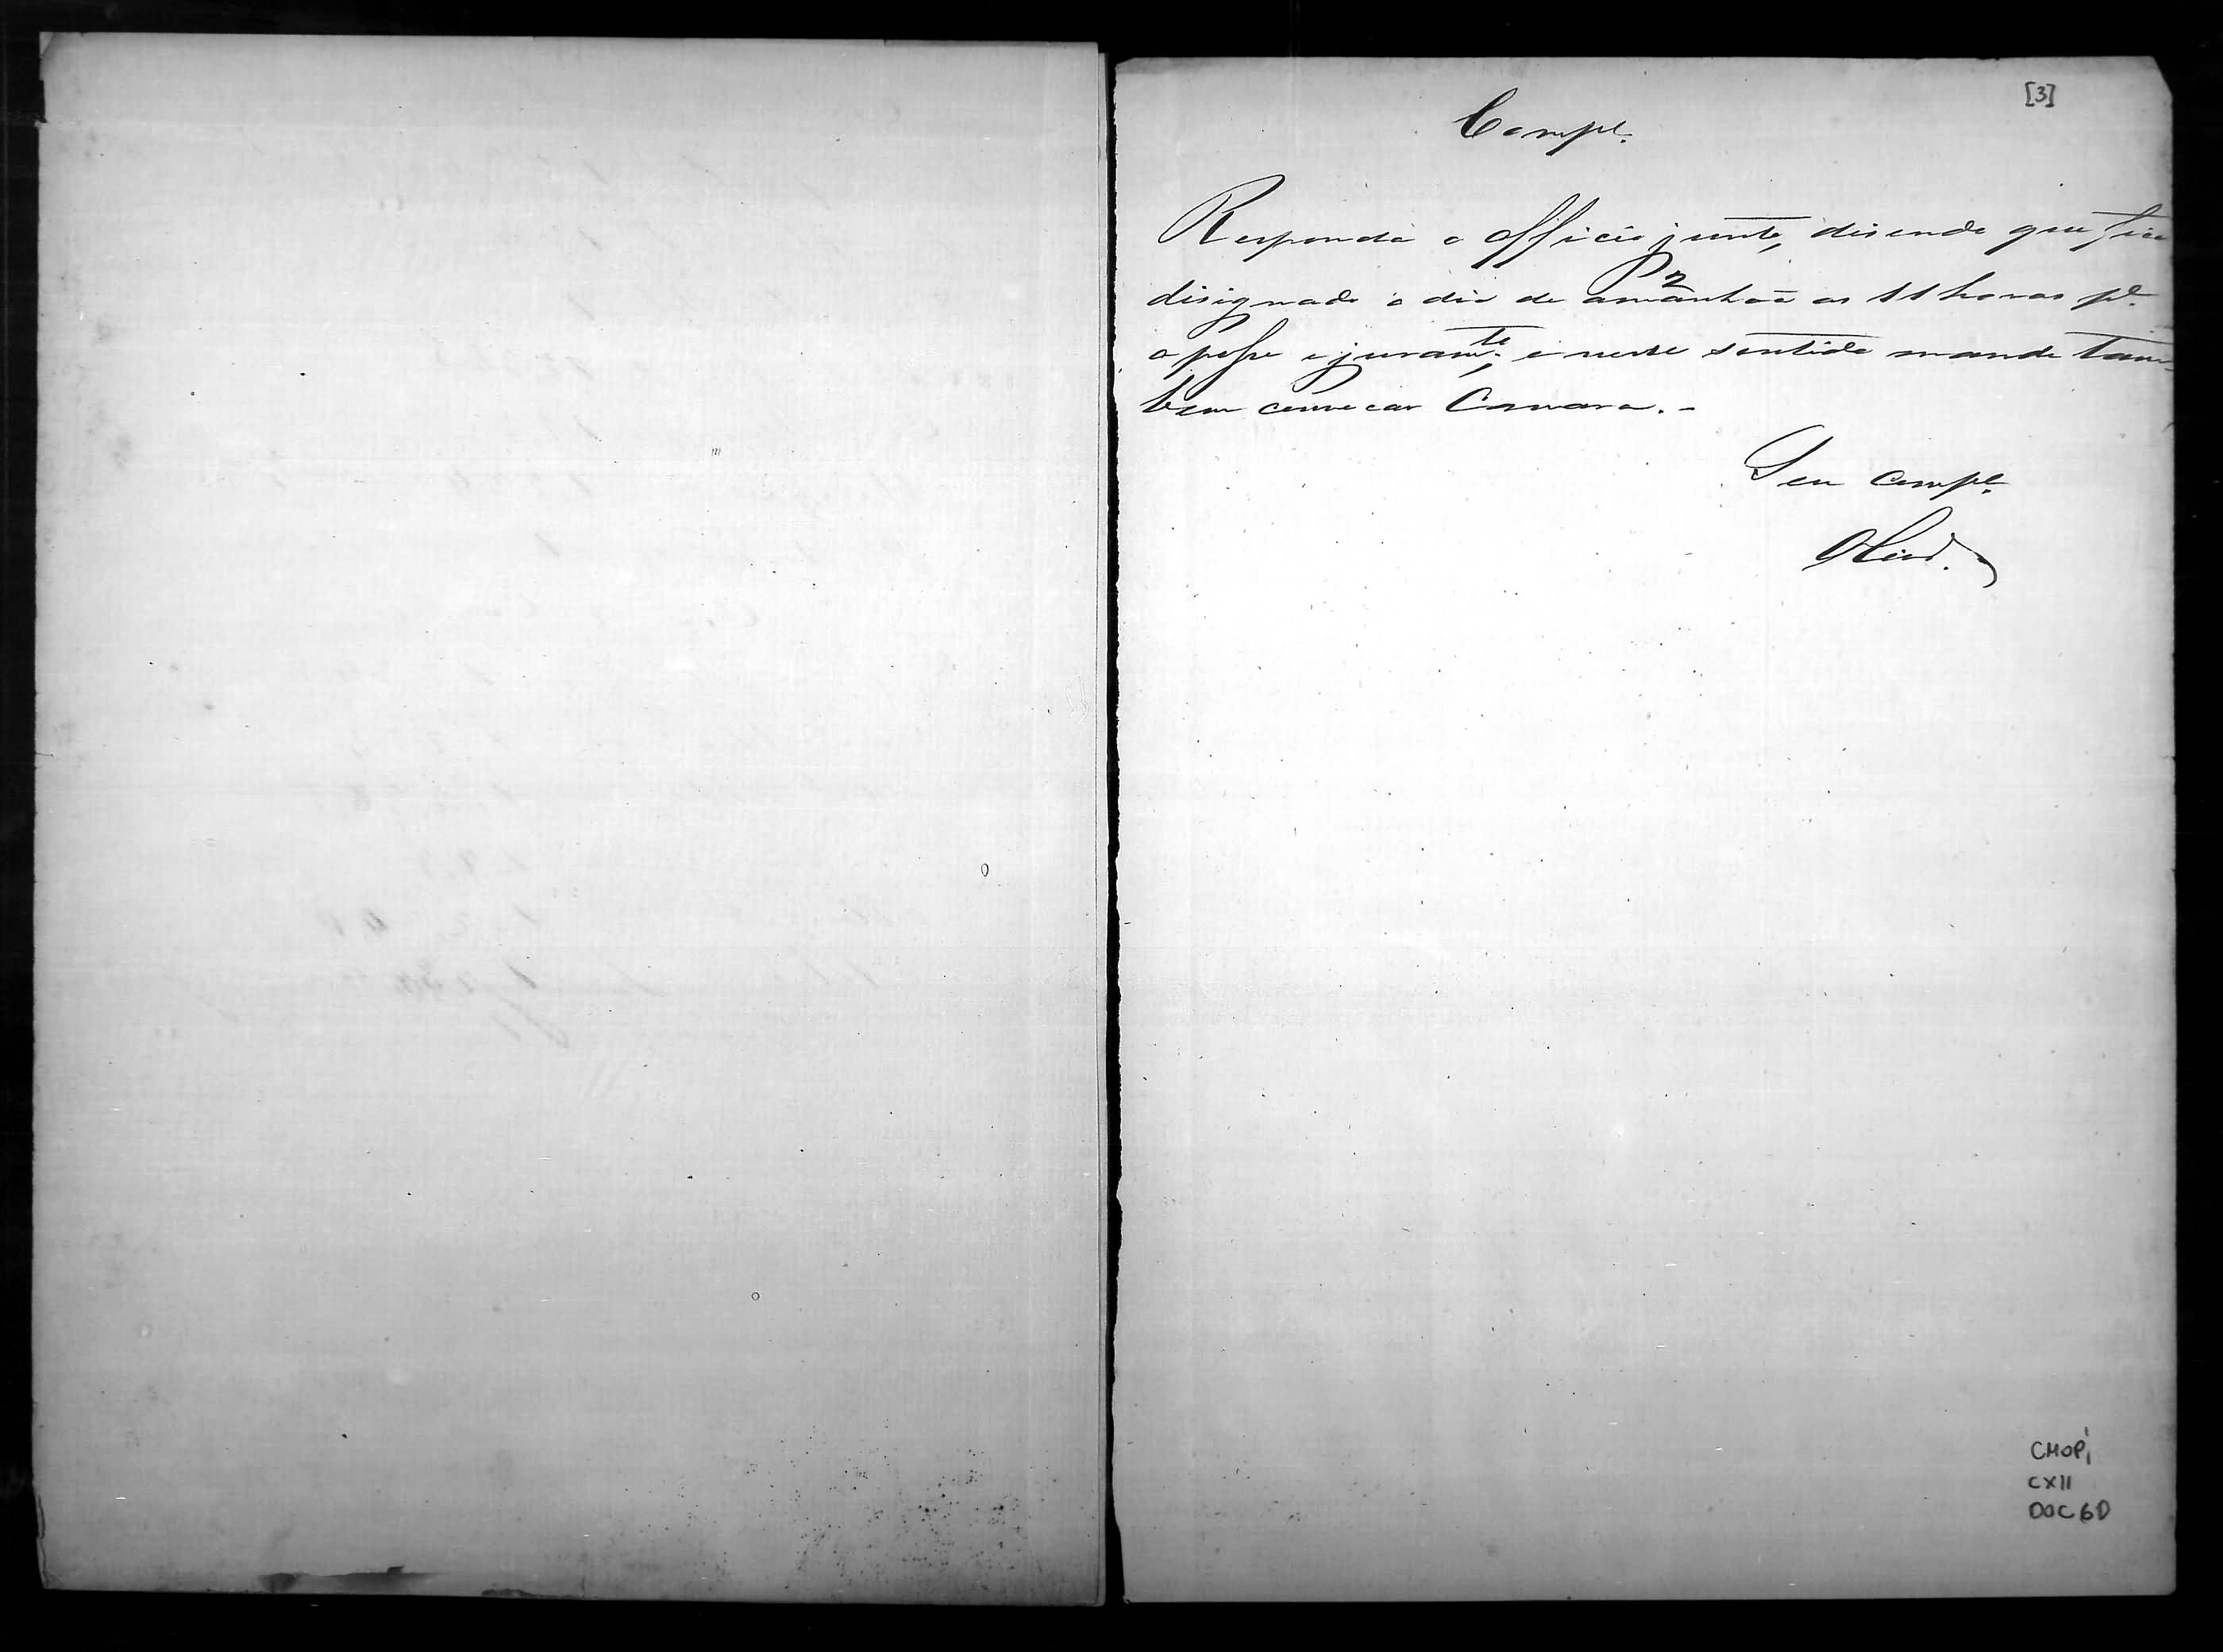 [3]
Compe.
Responda o officio junto, disendo que fica
disignado o dia de amanhaã as 11 horas pª.
a posse e juramte., e nesse sentido mande tam-
bem convocar Camara. -
Seu Compe.
CMOP,
CX11
DOC 60